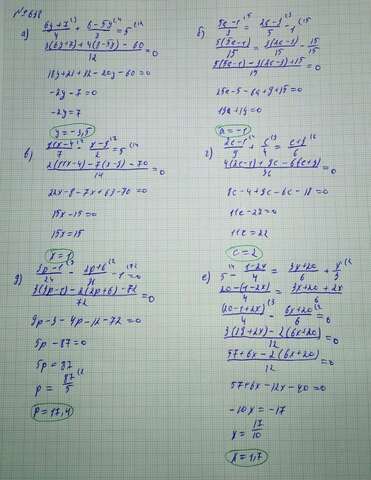 №638
а) (6y+7)/4 + (8-5y)/3 = 5
(3(6y+7)+4(8-5y)-60)/12 = 0
18y+21+32-20y-60=0
-2y-7=0
-2y=7
y=-3,5
б) (5a-1)/3 = (2a-3)/5 - 1
(5(5a-1))/15 = (3(2a-3))/15 - 15/15
(5(5a-1)-3(2a-3)+15)/15 = 0
25a-5-6a+9+15=0
19a+19=0
a=-1
в) (11x-4)/7 - (x-9)/2 = 5
14
22x-8-7x+63-70=0
15x-15=0
15x=15
x=1
г) (2c-1)/9 + c/4 = (c+3)/6
(4(2c-1)+9c-6(c+3))/36 = 0
8c-4+9c-6c-18=0
11c-22=0
11c=22
c=2
д) (3p-1)/24 - (2p+6)/36 - 1 = 0
(3(3p-1)-2(2p+6)-72)/72 = 0
9p-3-4p-12-72=0
5p-87=0
5p=87
p = 87/5
p=17,4
е) 5 - (1-2x)/4 = (3x+20)/6 + x/3
(20-(1-2x))/4 = (3x+20+2x)/6
=0
=0
(57+6x-2(6x+20))/12 = 0
57+6x-12x-40=0
-10x=-17
x = 17/10
x=1,7